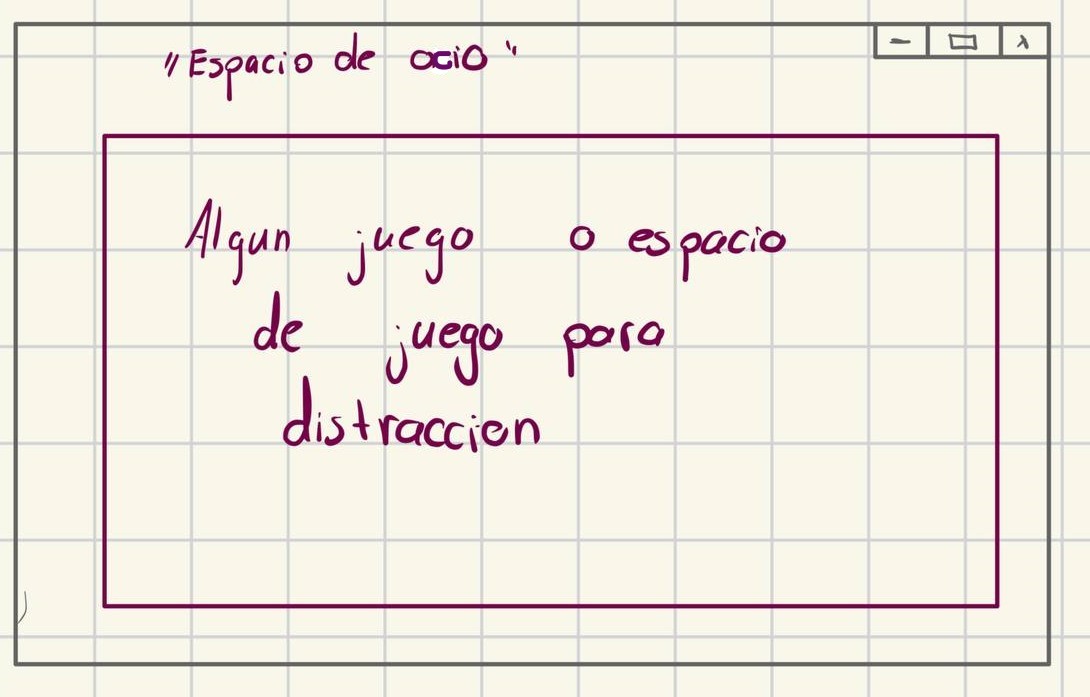 "Espacio de ocio"
Algun juego o espacio
de juego para
distraccion